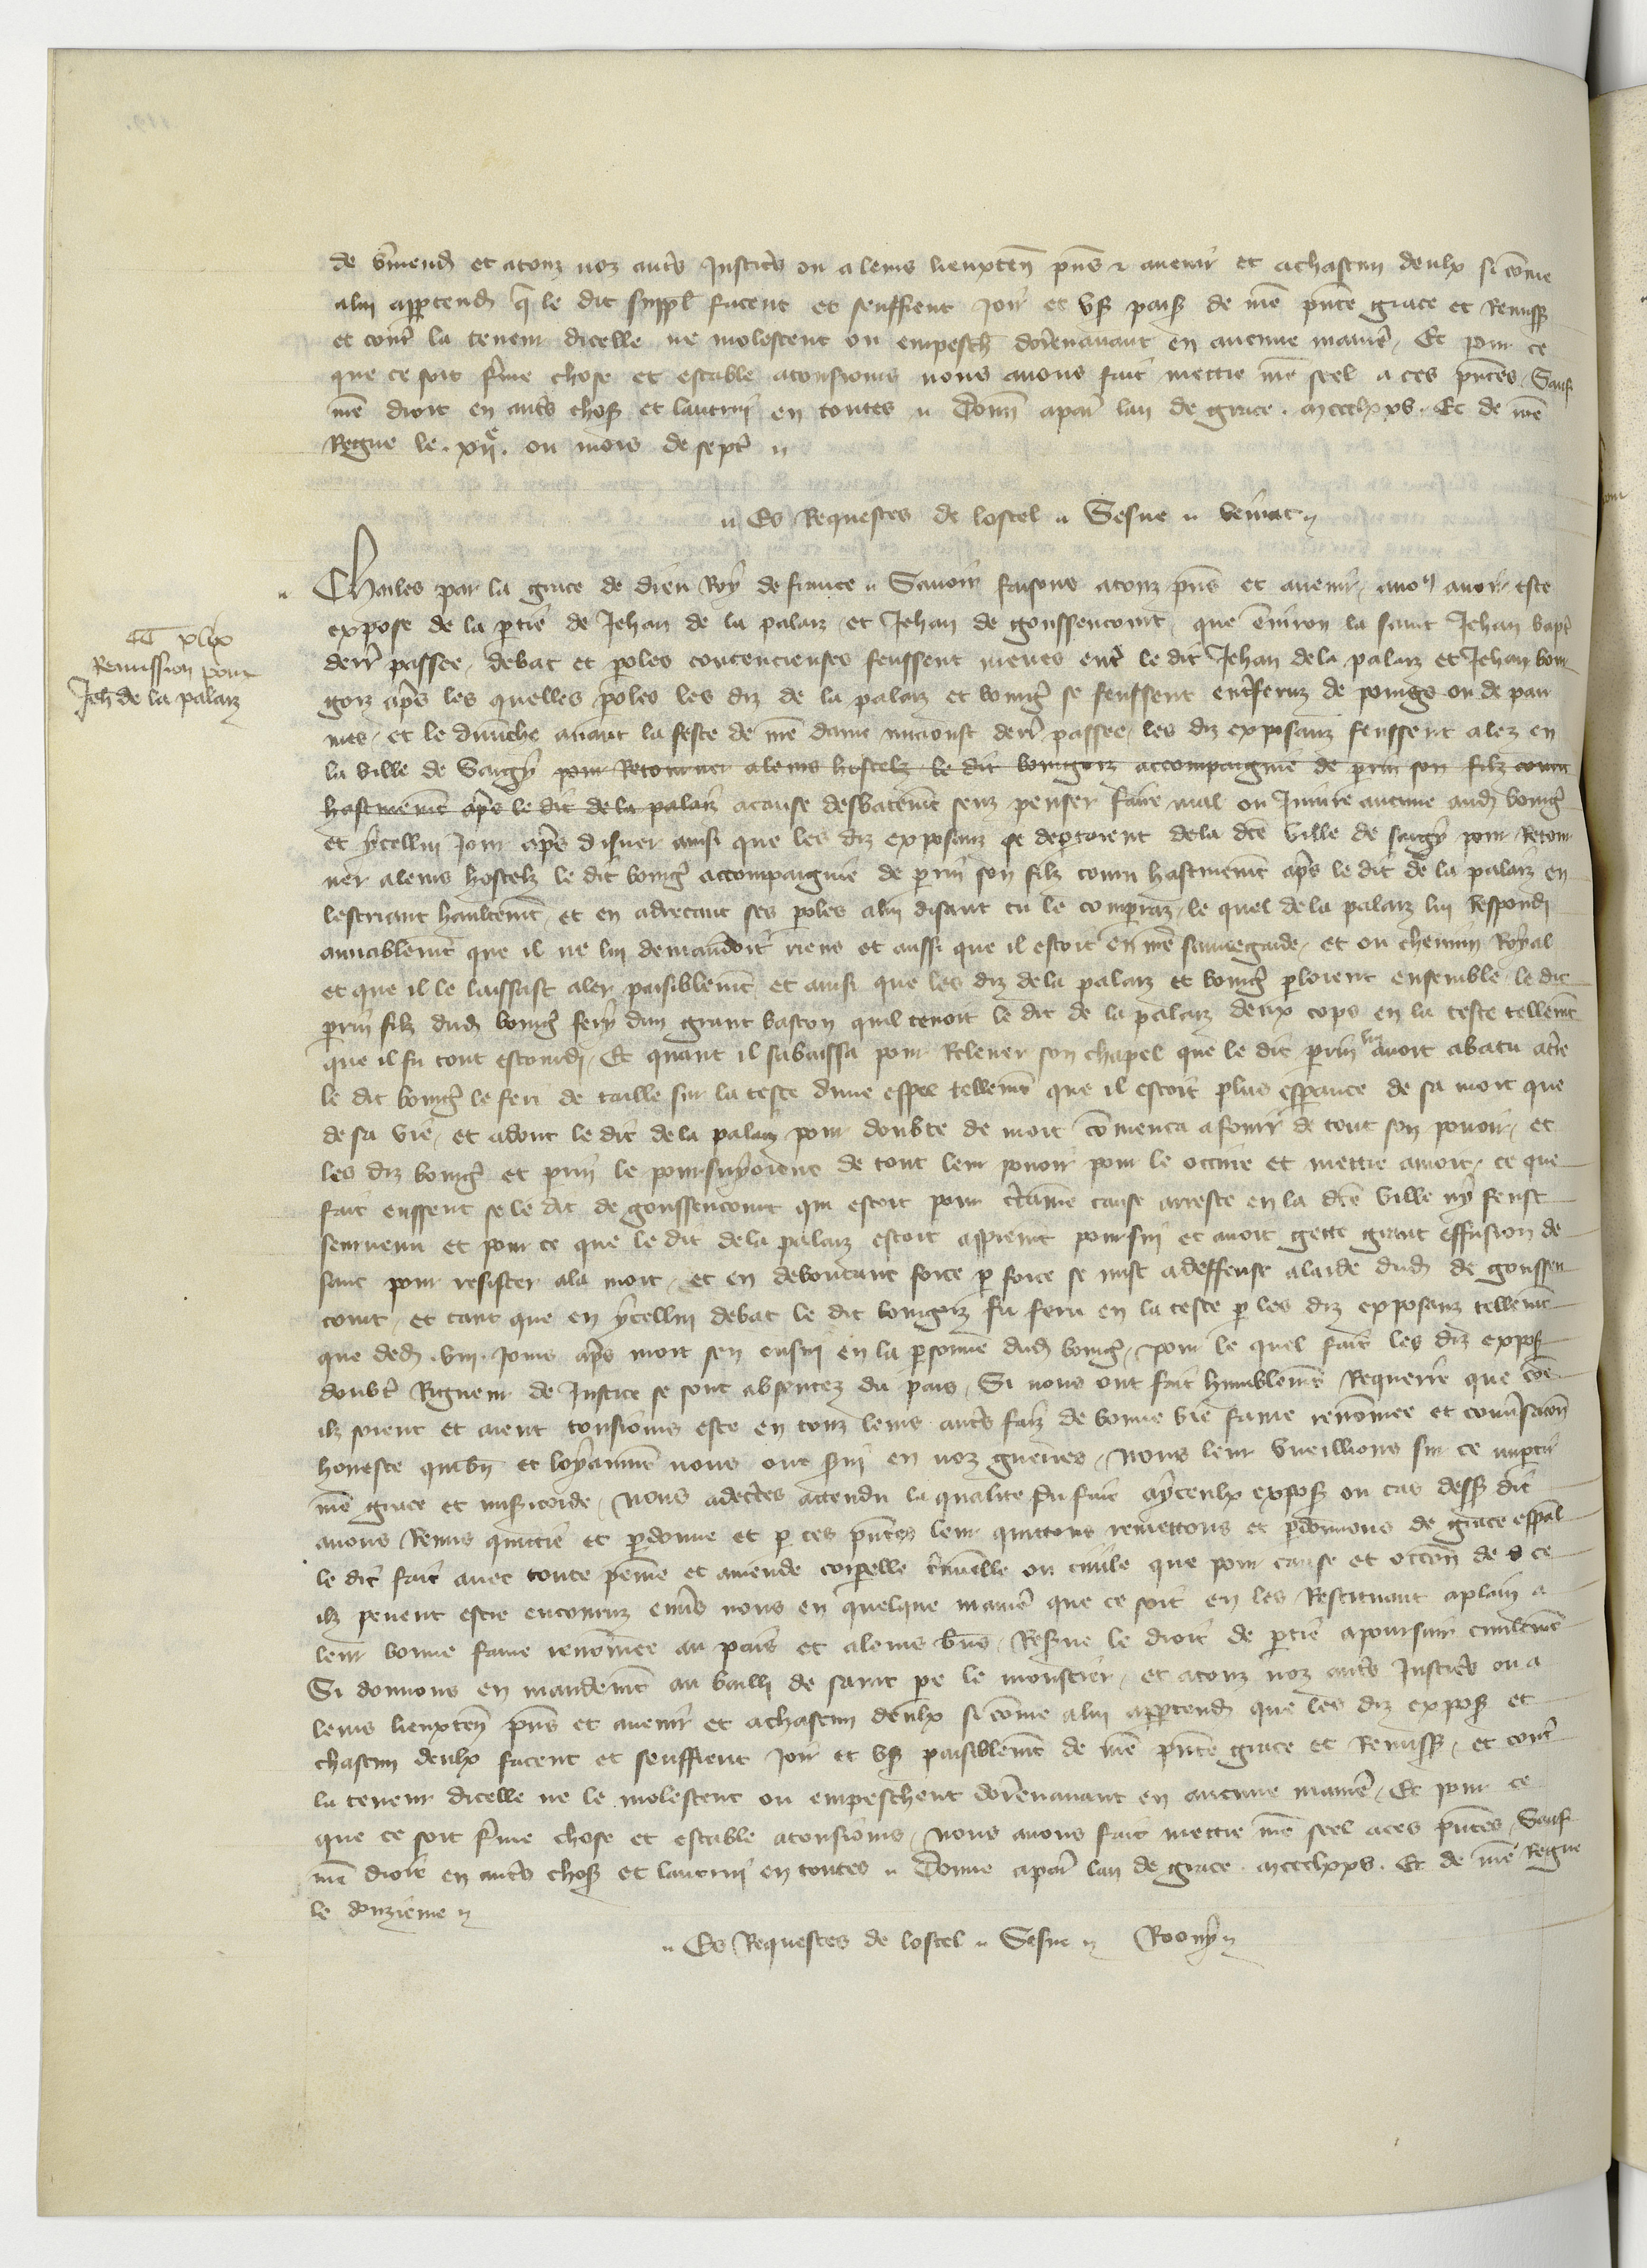 de v̾mend̾ et a touz noz aut̾s Justic̾s ou a leurs lieuxten̄ p̄ns ⁊ avenir et a chascun deulx si cōme
a lui app̱tend̾ q̄ le dit suppl̾ facent et seuffrent Joir et us̾ paisi. de n̄re p̄nte grace et Remiss̾
et cont̾ la teneur dicelle ne molestent ou empesch̾ dorenavant en aucune manie̾ Et pour ce
que ce soit fe̾me chose et estable a tousiours nous avons fait mettre n̄re seel a ces p̄ntes Sauf
n̄re droit en aut̾s chos̾ et lautrui en toutes Donn̄ a par̾ lan de grace . mccclxxv. Et de n̄re
Regne le . xije. ou mois de sept̾
Es Requestes de lostel Gesne
Charles par la grace de dieu Roy de france Savoir faisons a touz p̄ns et avenir avoir este
expose de la p̱tie de Jehan de la palaiz et Jehan de goussencourt que environ la saint Jehan bapt̾
derr̾ passee debat et p̱oles contencieuses feussent meues ent̾ le dit Jehan de la palaiz et Jehan bour
goiz ap̾s les quelles p̱oles les diz de la palaiz et bourg̾ se feussent ent̾feruz de poings ou de pau
mes et le dimēche avant la feste de n̄re dame my aoust derr̾ passee les diz exposanz feussent alez en
la ville de Sargy pour Retourner a leurs hostelz le dit bourgoiz accompaignie de perrin son filz couru
hastivemēt ap̾s le dit de la palaiz a cause desbatemēt senz penser faire mal ou Injure aucune aud̾ bourg̾
et ycellui jour ap̾s disner ainsi que les diz exposanz se dep̱toient de la dc̄e ville de sargy pour Retour
ner a leurs hostelz le dit bourg̾ accompaignie de perrin son filz couru hastivemēt ap̾s le dit de la palaiz en
lescriant haultemēt et en adrecant ses p̱oles a lui disant tu le comp̱raz le quel de la palaiz lui Respondi
amiablemēt que il ne lui demandoit riens et aussi que il estoit en n̄re sauvegarde et ou chemin Royal
et que il le laissast aler paisiblemēt et ainsi que les diz de la palaiz et bourg̾ p̱loient ensemble le dit
perrin filz dud̾ bourg̾ fery dun grant baston quil tenoit le dit de la palaiz deux cops en la teste tellemēt
que il fu tout estourdi Et quant il sabaissa pour Relever son chapel que le dit perrin lui avoit abatu a t̾re
le dit bourg̾ le feri de taille sur la teste dune espee tellemēt que il estoit plus esp̱ance de sa mort que
de sa vie et adont le dit de la palaiz pour doubte de mort cōmenca a fouir de tout son povoir et
les diz bourg̾ et perrin le poursuyoient de tout leur povoir pour le occire et mettre a mort ce que
fait eussent se le dit de goussencourt qui estoit pour c̾taine cause arreste en la dc̄e ville ny feust
seurvenu et pour ce que le dit de la palaiz estoit asprem̄t poursui et avoit gette grant effusion de
sanc pour resister a la mort et en deboutant force p̱ force se mist a deffense a laide dud̾ de goussen
court et tant que en ycellui debat le dit bourgoiz fu feru en la teste p̱ les diz exposanz tellemēt
que ded̾ .viij. Jours ap̾s mort sen ensui en la p̱sonne dud̾ bourg̾ pour le quel fait les diz expos̾
doubt̾ Rigueur de Justice se sont absentez du pais Si nous ont fait humblemēt Requerre que cōe
ilz soient et aient tousiours este en touz leurs aut̾s faiz de bonne vie fame renōmee et conv̾sacōn
honeste qui bn̄ et loyaumēt nous ont s̾vi en noz guerres Nous leur vueillions sur ce imp̱tir
n̄re grace et mis̾icorde Nous adec̾tes attendu la qualite du fait a yceulx expos̾ ou cas dess̾ dit
avons Remis quittie et p̱donne et p̱ ces p̄ntes leur quittons remettons et p̱donnons de grace esp̄al
le dit fait avec toute peine et amende corp̱elle c̾minelle ou civile que pour cause et occōn de ce
ilz pevent estre encouruz env̾s nous en quelque manie̾ que ce soit en les Restituant a plain a
leur bonne fame renōmee au pais et a leurs bn̄s Res̾ve le droit de p̱tie a poursuir civilemēt
Si donnons en mandemēt au bailli de saint pe̾ le monstier et a touz noz aut̾s Justic̾s ou a
leurs lieuxten̄ p̄ns et avenir et a chascun deulx si cōme a lui app̱tend̾ que les diz expos̾ et
chascun deulx facent et seuffrent Joir et us̾ paisiblemēt de n̄re p̄nte grace et Remiss̾ et cont̾
la teneur dicelle ne le molestent ou empeschent dorenavant en aucune manie̾ Et pour ce
que ce soit fe̾me chose et estable a tousiours nous avons fait mettre n̄re seel a ces p̄ntes Sauf
n̄re droit en aut̾s chos̾ et lautrui en toutes Donne a par̾ lan de grace . mccclxxv. Et de n̄re Regne
le douzieme
Es Requestes de lostel Gesne Roony
xlix
Remission pour
Jeh̾ de la palaiz